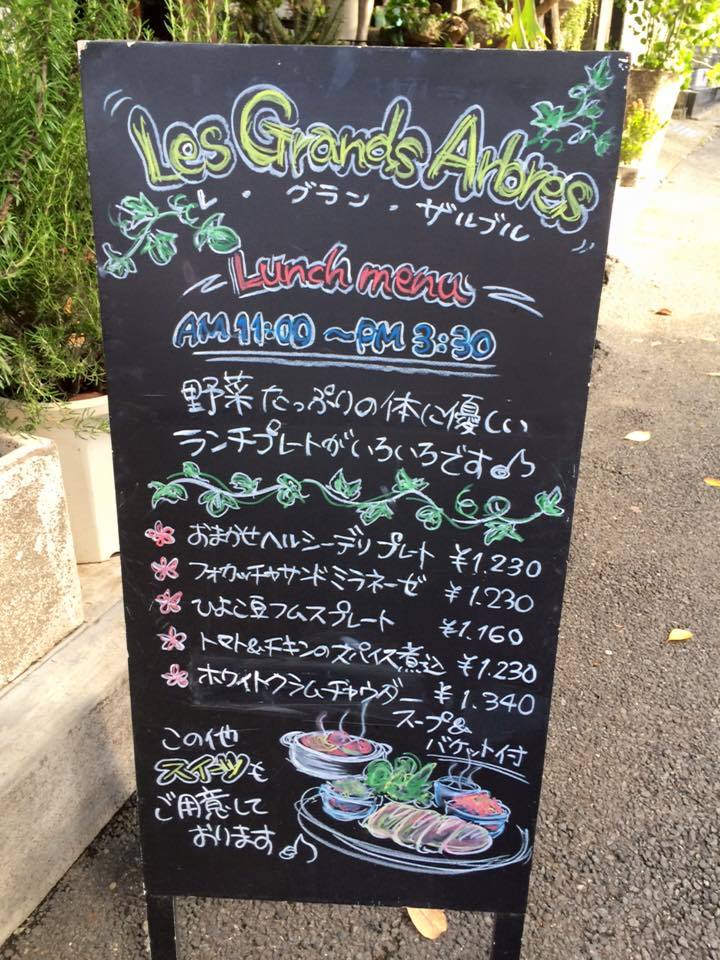 Les Grands Arbres
レ・グラン・ザルブル
Lunch menu
AM 11:00 ~PM 3:30
野菜たっぷりの体に優しい
ランチプレートがいろいろです♪
おまかせヘルシーデリプレート ¥1.230
フォカッチャサンドミラネーゼ ¥1.230
ひよこ豆フムスプレート ¥1.160
トマト&チキンのスパイス煮込 ¥1.230
ホワイトクラムチャウダー ¥1.340
スープ&
バケット付
この他
スイーツも
ご用意して
おります♪